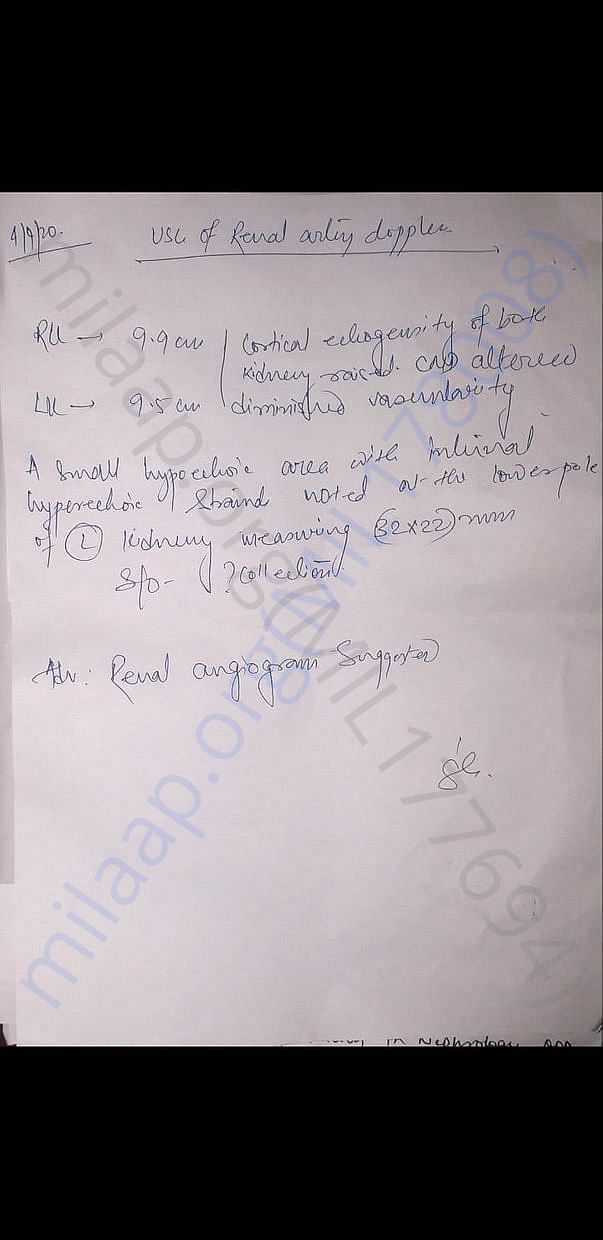 4/9/20.
USG of Renal artery doppler
RK → 9.9 cm Cortical echogensity of both
kidney raised. CMD altered
LK → 9.5 cm diminished vascularity
A small hypoechoic area with internal
hyperechoic strand noted at the lower pole
of (L) kidney measuring (32x22) mm
S/o- ? collection
Adv: Renal angiogram Suggested
in Nephrology
milaap.org (MIL177694)
milaap.org (MIL178908)